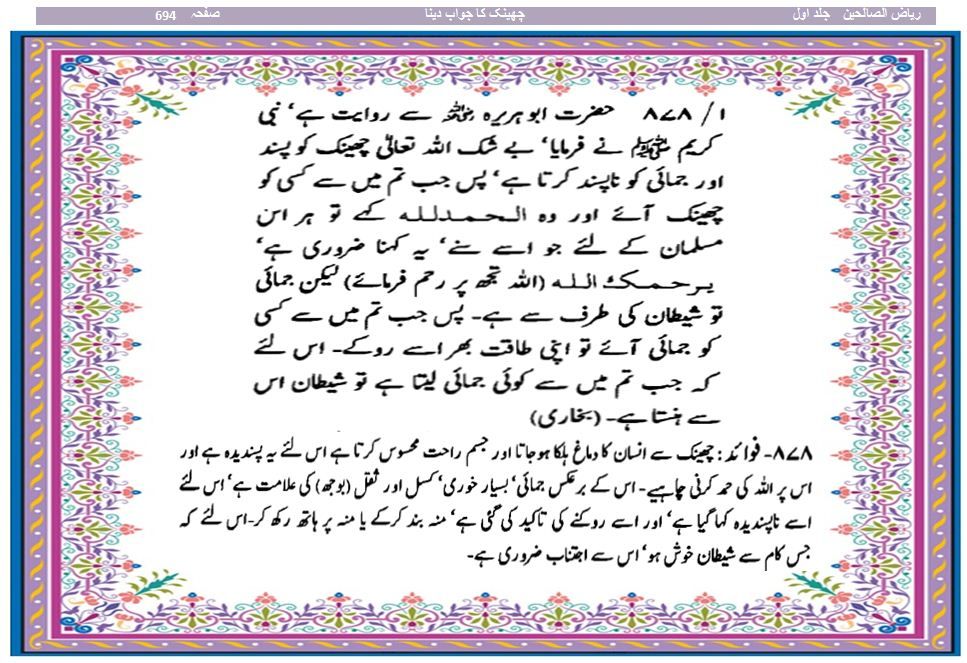 ریاض الصالحین جلد اول چھینک کا جواب دینا صفحہ 694
۱/ ۸۷۸ حضرت ابوہریرہ رضی اللہ عنہ سے روایت ہے‘ نبی
کریم صلی اللہ علیہ وسلم نے فرمایا‘ بے شک اللہ تعالیٰ چھینک کو پسند
اور جمائی کو ناپسند کرتا ہے‘ پس جب تم میں سے کسی کو
چھینک آئے اور وہ الحمدللہ کہے تو ہر اس
مسلمان کے لئے جو اسے سنے‘ یہ کہنا ضروری ہے‘
یرحمک اللہ (اللہ تجھ پر رحم فرمائے) لیکن جمائی
تو شیطان کی طرف سے ہے۔ پس جب تم میں سے کسی
کو جمائی آئے تو اپنی طاقت بھر اسے روکے۔ اس لئے
کہ جب تم میں سے کوئی جمائی لیتا ہے تو شیطان اس
سے ہنستا ہے۔ (بخاری)
۸۷۸۔ فوائد: چھینک سے انسان کا دماغ ہلکا ہوجاتا اور جسم راحت محسوس کرتا ہے اس لئے یہ پسندیدہ ہے اور
اس پر اللہ کی حمد کرنی چاہیے۔ اس کے برعکس جمائی‘ بسیار خوری‘ کسل اور ثقل (بوجھ) کی علامت ہے‘ اس لئے
اسے ناپسندیدہ کہا گیا ہے‘ اور اسے روکنے کی تاکید کی گئی ہے‘ منہ بند کرکے یا منہ پر ہاتھ رکھ کر۔ اس لئے کہ
جس کام سے شیطان خوش ہو‘ اس سے اجتناب ضروری ہے۔